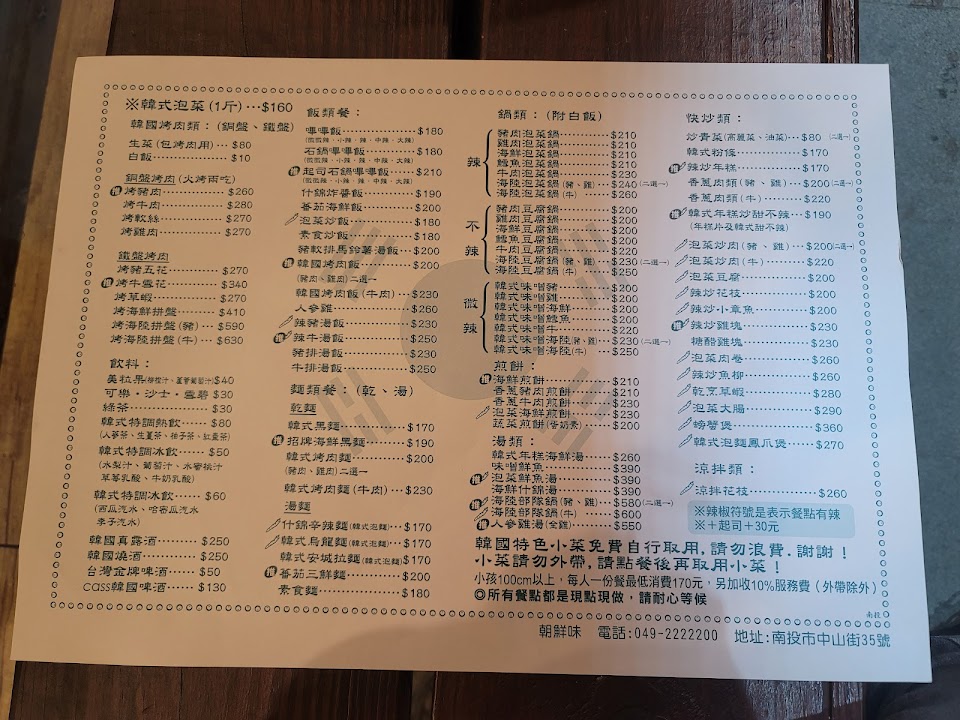 ※韓式泡菜(1斤)…$160
韓國烤肉類：(銅盤、鐵盤)
生菜(包烤肉用)…$80
白飯…$10
銅盤烤肉(火烤兩吃)
推 烤豬肉…$260
烤牛肉…$280
烤軟絲…$270
烤雞肉…$270
鐵盤烤肉
烤豬五花…$270
推 烤牛雪花…$340
烤草蝦…$270
烤海鮮拼盤…$410
烤海陸拼盤(豬)…$590
烤海陸拼盤(牛)…$630
飲料：
美粒果(柳橙汁、蘆薈葡萄汁)$40
可樂·沙士·雪碧 $30
綠茶…$30
韓式特調熱飲…$80
(人蔘茶、生薑茶、柚子茶、紅棗茶)
韓式特調冰飲…$50
(水梨汁、葡萄汁、水蜜桃汁
草莓乳酸、牛奶乳酸)
韓式特調冰飲…$60
(西瓜汽水、哈密瓜汽水
李子汽水)
韓國真露酒…$250
韓國燒酒…$250
台灣金牌啤酒…$50
cass韓國啤酒…$130
飯類餐：
嗶嗶飯…$180
(微微辣、小辣、辣、中辣、大辣)
石鍋嗶嗶飯…$180
(微微辣、小辣、辣、中辣、大辣)
推 起司石鍋嗶嗶飯…$210
(微微辣、小辣、辣、中辣、大辣)
什錦炸醬飯…$190
蕃茄海鮮飯…$200
泡菜炒飯…$180
素食炒飯…$180
豬軟排馬鈴薯湯飯…$200
推 韓國烤肉飯…$200
(豬肉、雞肉)二選一
韓國烤肉飯(牛肉)…$230
人參雞…$260
辣豬湯飯…$230
推 辣牛湯飯…$250
豬排湯飯…$230
牛排湯飯…$250
麵類餐：(乾、湯)
乾麵
韓式黑麵…$170
推 招牌海鮮黑麵…$190
韓式烤肉麵…$200
(豬肉、雞肉)二選一
韓式烤肉麵(牛肉)…$230
湯麵
什錦辛辣麵(韓式泡麵)…$170
韓式烏龍麵(韓式泡麵)…$170
韓式安城拉麵(韓式泡麵)$170
推 蕃茄三鮮麵…$200
素食麵…$180
鍋類：(附白飯)
辣
豬肉泡菜鍋…$210
雞肉泡菜鍋…$210
海鮮泡菜鍋…$210
鱈魚泡菜鍋…$210
牛肉泡菜鍋…$230
海陸泡菜鍋(豬、雞)…$240(二選一)
海陸泡菜鍋(牛)…$260
不辣
豬肉豆腐鍋…$200
雞肉豆腐鍋…$200
海鮮豆腐鍋…$200
鱈魚豆腐鍋…$200
牛肉豆腐鍋…$220
海陸豆腐鍋(豬、雞)…$230(二選一)
海陸豆腐鍋(牛)…$250
微辣
韓式味噌豬…$200
韓式味噌雞…$200
韓式味噌海鮮…$200
韓式味噌鱈魚…$200
韓式味噌牛…$220
韓式味噌海陸(豬、雞)…$230(二選一)
韓式味噌海陸(牛)…$250
煎餅：
推 海鮮煎餅…$210
香蔥豬肉煎餅…$210
香蔥牛肉煎餅…$230
泡菜海鮮煎餅…$230
蔬菜煎餅(蛋奶素)…$200
湯類：
韓式年糕海鮮湯…$260
味噌鮮魚…$390
推 泡菜鮮魚湯…$390
海鮮什錦湯…$390
推 海陸部隊鍋(豬、雞)…$580(二選一)
推 海陸部隊鍋(牛)…$600
推 人參雞湯(全雞)…$550
快炒類：
炒青菜(高麗菜、油菜)…$80(二選一)
韓式粉條…$170
推 辣炒年糕…$170
香蔥肉類(豬、雞)…$200(二選一)
香蔥肉類(牛)…$220
推 韓式年糕炒甜不辣…$190
(年糕片及韓式甜不辣)
泡菜炒肉(豬、雞)…$200(二選一)
泡菜炒肉(牛)…$220
泡菜豆腐…$200
辣炒花枝…$200
辣炒小章魚…$200
推 辣炒雞塊…$230
糖醋雞塊…$230
泡菜肉卷…$260
辣炒魚柳…$260
乾烹草蝦…$280
泡菜大腸…$290
螃蟹煲…$360
韓式泡麵鳳爪煲…$270
涼拌類：
涼拌花枝…$260
※辣椒符號是表示餐點有辣
※＋起司＋30元
韓國特色小菜免費自行取用,請勿浪費.謝謝！
小菜請勿外帶,請點餐後再取用小菜！
小孩100cm以上，每人一份餐最低消費170元，另加收10%服務費（外帶除外）
◎所有餐點都是現點現做，請耐心等候
南投
朝鮮味 電話:049-2222200 地址:南投市中山街35號